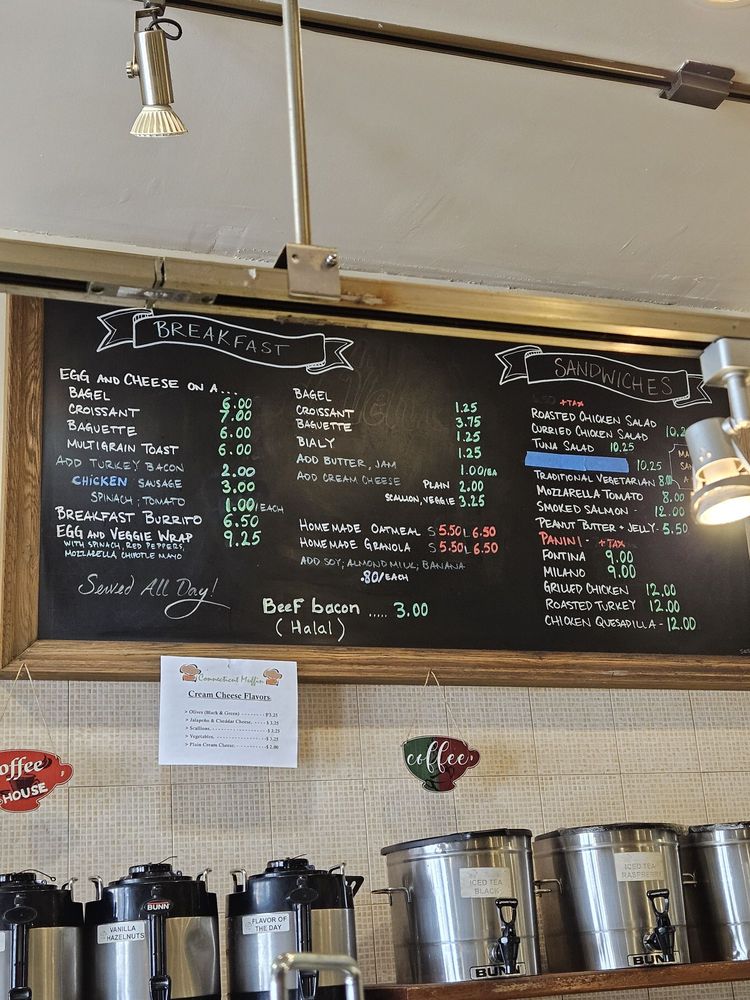 BREAKFAST
EGG AND CHEESE ON A...
BAGEL 6.00
CROISSANT 7.00
BAGUETTE 6.00
MULTIGRAIN TOAST 6.00
ADD TURKEY BACON 2.00
CHICKEN SAUSAGE 3.00
SPINACH; TOMATO 1.00/EACH
BREAKFAST BURRITO 6.50
EGG AND VEGGIE WRAP 9.25
WITH SPINACH, RED PEPPERS,
MOZZARELLA, CHIPOTLE MAYO
Served All Day!
BAGEL 1.25
CROISSANT 3.75
BAGUETTE 1.25
BIALY 1.25
ADD BUTTER, JAM 1.00/EA
ADD CREAM CHEESE PLAIN 2.00
SCALLION, VEGGIE 3.25
HOMEMADE OATMEAL S 5.50 L 6.50
HOMEMADE GRANOLA S 5.50 L 6.50
ADD SOY; ALMOND MILK; BANANA
.80/EACH
Beef bacon ..... 3.00
(Halal)
SANDWICHES
+TAX
ROASTED CHICKEN SALAD
CURRIED CHICKEN SALAD 10.2
TUNA SALAD 10.25
10.25
TRADITIONAL VEGETARIAN 8.00
MOZZARELLA TOMATO 8.00
SMOKED SALMON - 12.00
PEANUT BUTTER + JELLY - 5.50
PANINI - +TAX
FONTINA 9.00
MILANO 9.00
GRILLED CHICKEN 12.00
ROASTED TURKEY 12.00
CHICKEN QUESADILLA - 12.00
Connecticut Muffin
Cream Cheese Flavors
> Olives (Black & Green) - - - - - - - - - $3.25
> Jalapeño & Cheddar Cheese, - - - - - $3.25
> Scallions, - - - - - - - - - - - - - - - $3.25
> Vegetables, - - - - - - - - - - - - - - $3.25
> Plain Cream Cheese, - - - - - - - - - $2.00
offee
HOUSE
coffee
BUNN
VANILLA
HAZELNUTS
FLAVOR OF
THE DAY
ICED TEA
BLACK
BUNN
ICED TEA
RASPBERRY
BUNN